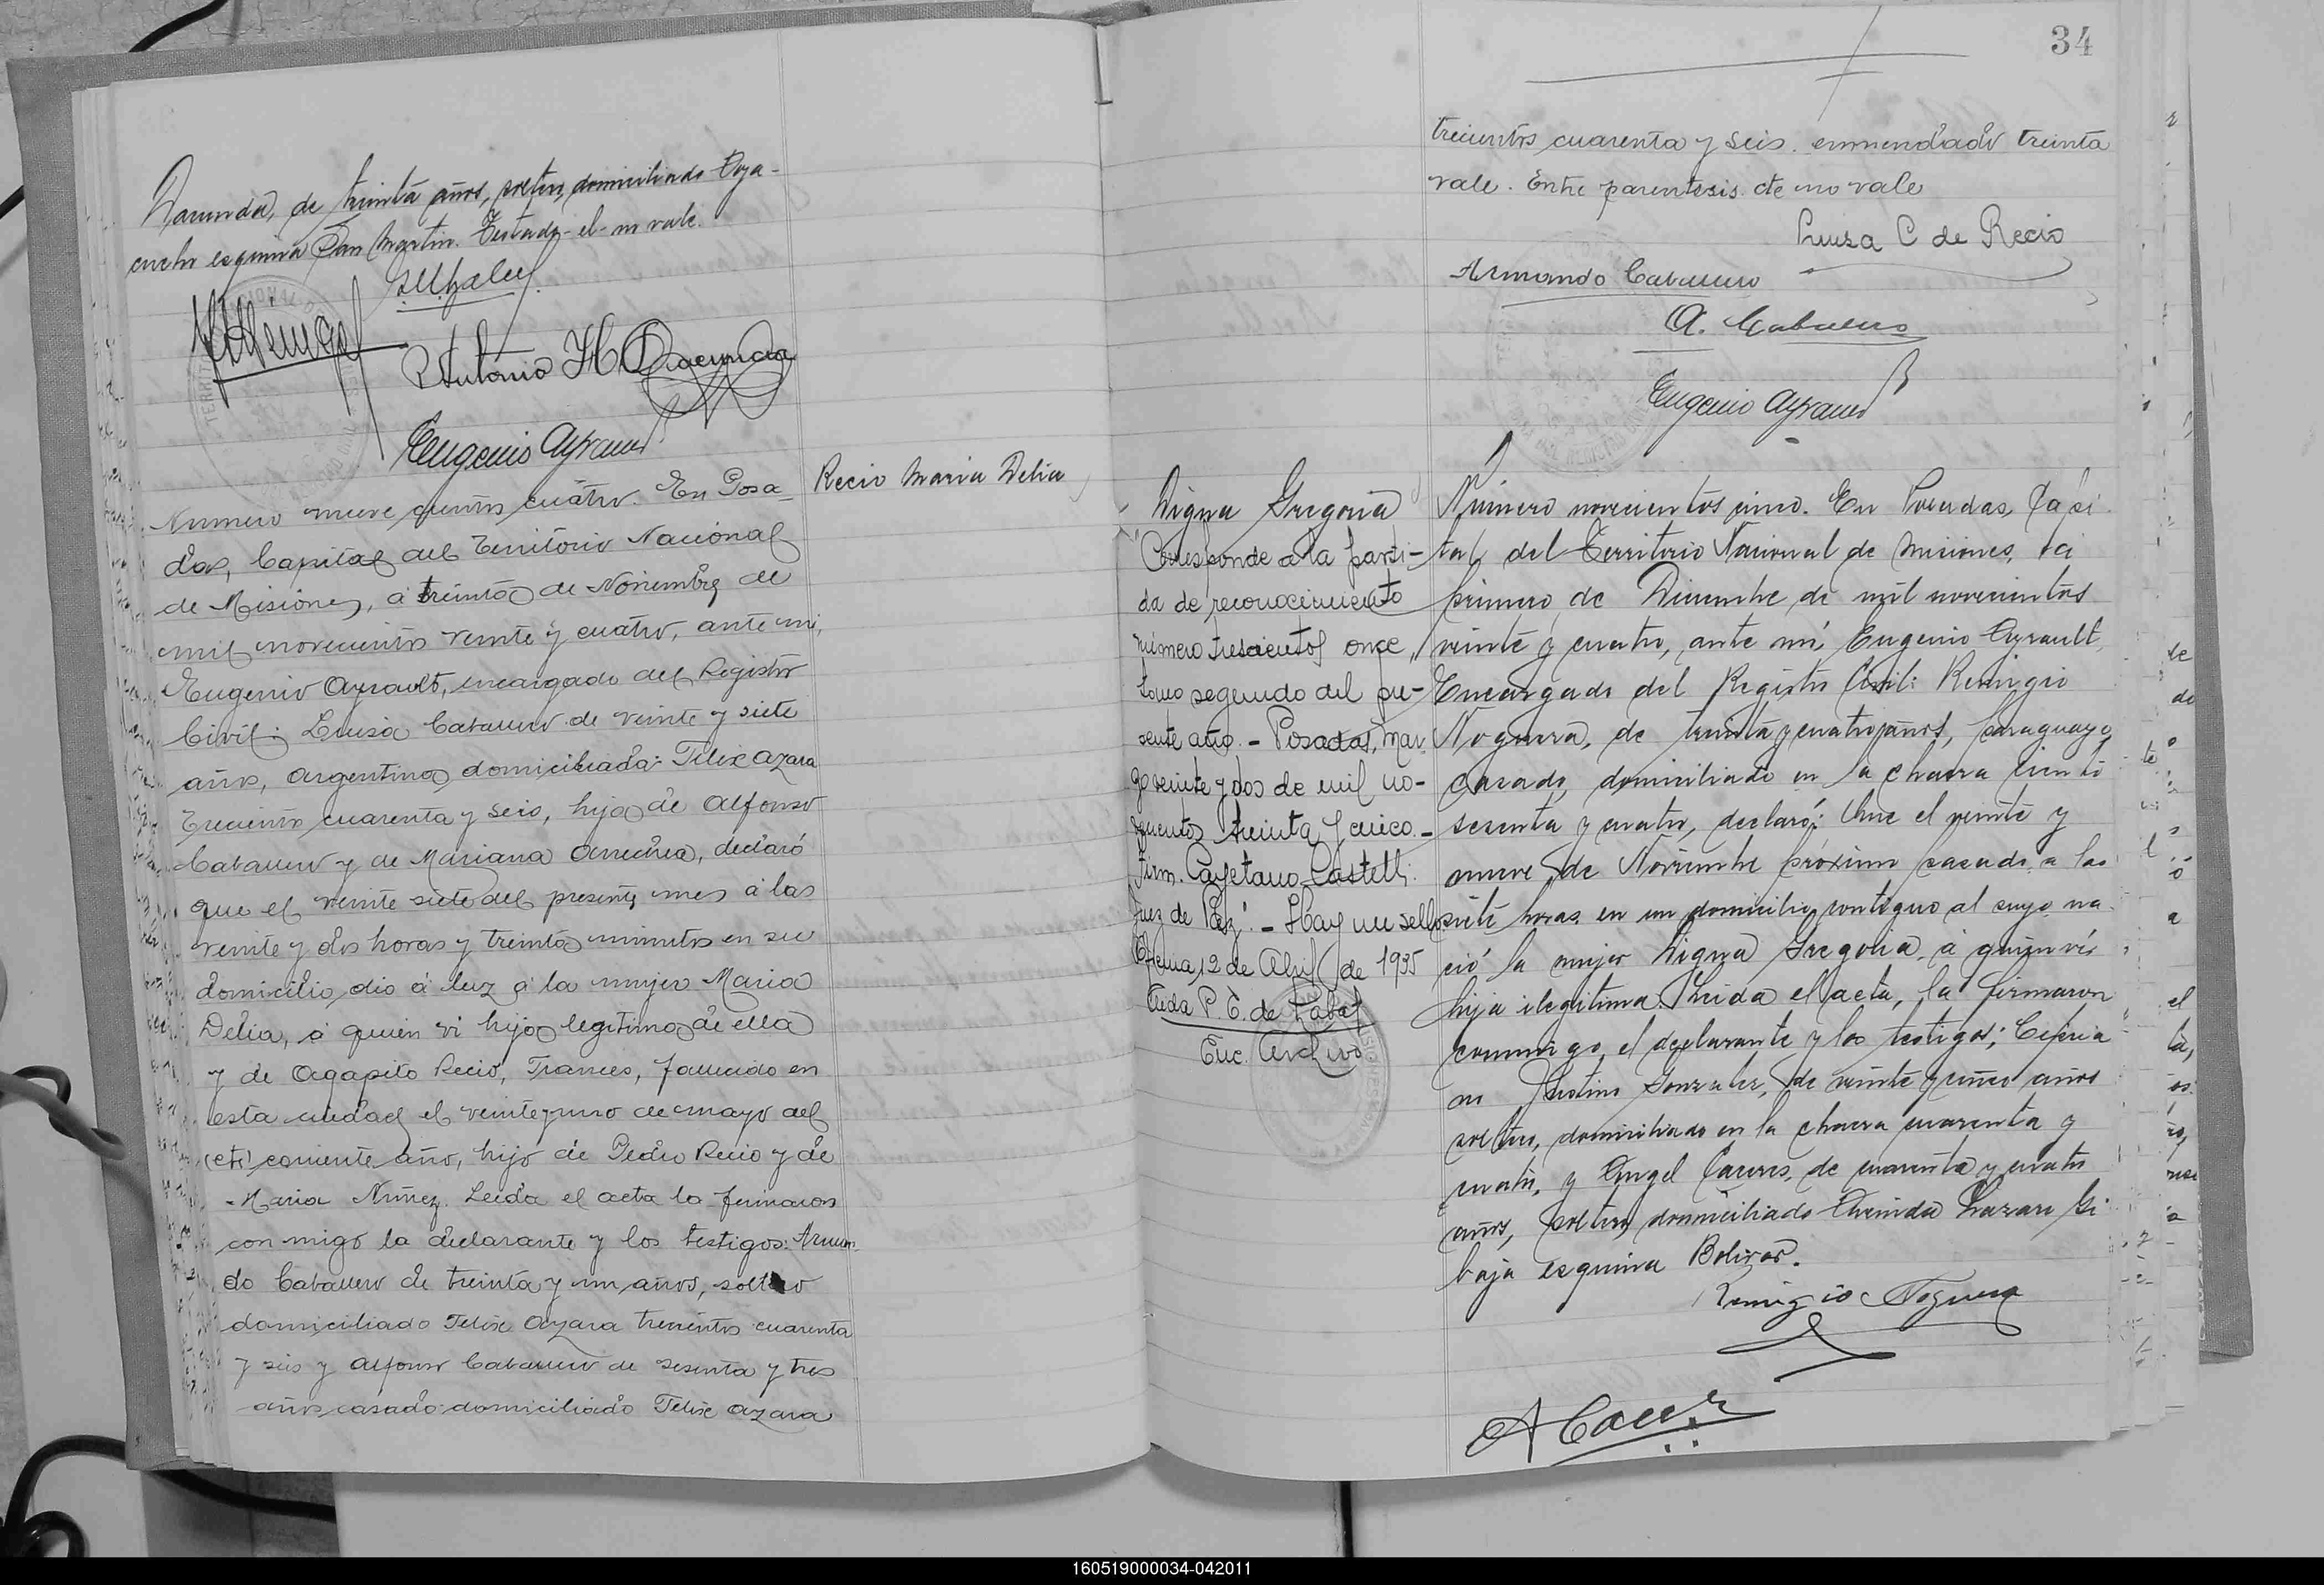 de treinta años, soltero, domiciliado Aya-
cucho esquina San Martin. Testado-el-no vale.
Antonio H
Eugenio Ayrault
Recio Maria Delia
Numero nueve cientos cuatro. En Posa-
das, Capital del Territorio Nacional
de Misiones, á treinta de Noviembre de
mil novecientos veinte y cuatro, ante mi,
Eugenio Ayrault, encargado del Registro
Civil: Luisa Caballero de veinte y siete
años, Argentina domiciliada: Felix Azara
Trecientos cuarenta y seis, hija de Alfonso
Caballero y de Mariana declaró
que el veinte siete del presente mes á las
veinte y dos horas y treinta minutos en su
domicilio dio á luz á la mujer Maria
Delia, á quien vi hija legitima de ella
y de Agapito Recio, Frances, fallecido en
esta ciudad el veinte y uno de mayo del
(cte) corriente año, hijo de Pedro Recio y de
Maria Nuñez. Leida el acta la firmaron
con migo la declarante y los testigos: Arman-
do Caballero de treinta y un años, soltero
domiciliado Felix Azara trecientos cuarenta
y seis y Alfonso Caballero de sesenta y tres
años casado domiciliado Felix Azara
34
trecientos cuarenta y seis. enmendado treinta
vale. Entre parentesis. cte no vale
Luisa C de Recio
Armando Caballero
A. Caballero
Eugenio Ayrault
Digna Gregoria
"Corresponde a la parti-
da de reconocimiento
número trescientos once,
tomo segundo del pre-
sente año. - Posadas, mar-
zo veinte y dos de mil no-
vecientos treinta y cinco.-
Firm. Cayetano Castelli.
Juez de Paz". - Hay un sello
Oficina, 12 de Abril de 1935
P. C. de
Enc. Archivo
Número novecientos cinco. En Posadas, Capi-
tal del Territorio Nacional de Misiones, á
primero de Diciembre de mil novecientos
veinte y cuatro, ante mí, Eugenio Ayrault,
Encargado del Registro Civil: Remigio
Noguera, de treinta y cuatro años, paraguayo,
casado, domiciliado en la chacra ciento
sesenta y cuatro, declaró: Que el veinte y
nueve de Noviembre próximo pasado a las
siete horas en un domicilio contiguo al suyo na-
ció la mujer Digna Gregoria, á quien vi
hija ilegitima. Leida el acta, la firmaron
conmigo, el declarante y los testigos;
Gonzalez, de veinte y cinco años
soltero, domiciliado en la chacra cuarenta y
cuatro, y Angel Caceres, de cuarenta y cuatro
años, soltero, domiciliado Avenida Lazaro Gi-
baja esquina Bolivar.
Remigio Noguera
160519000034-042011